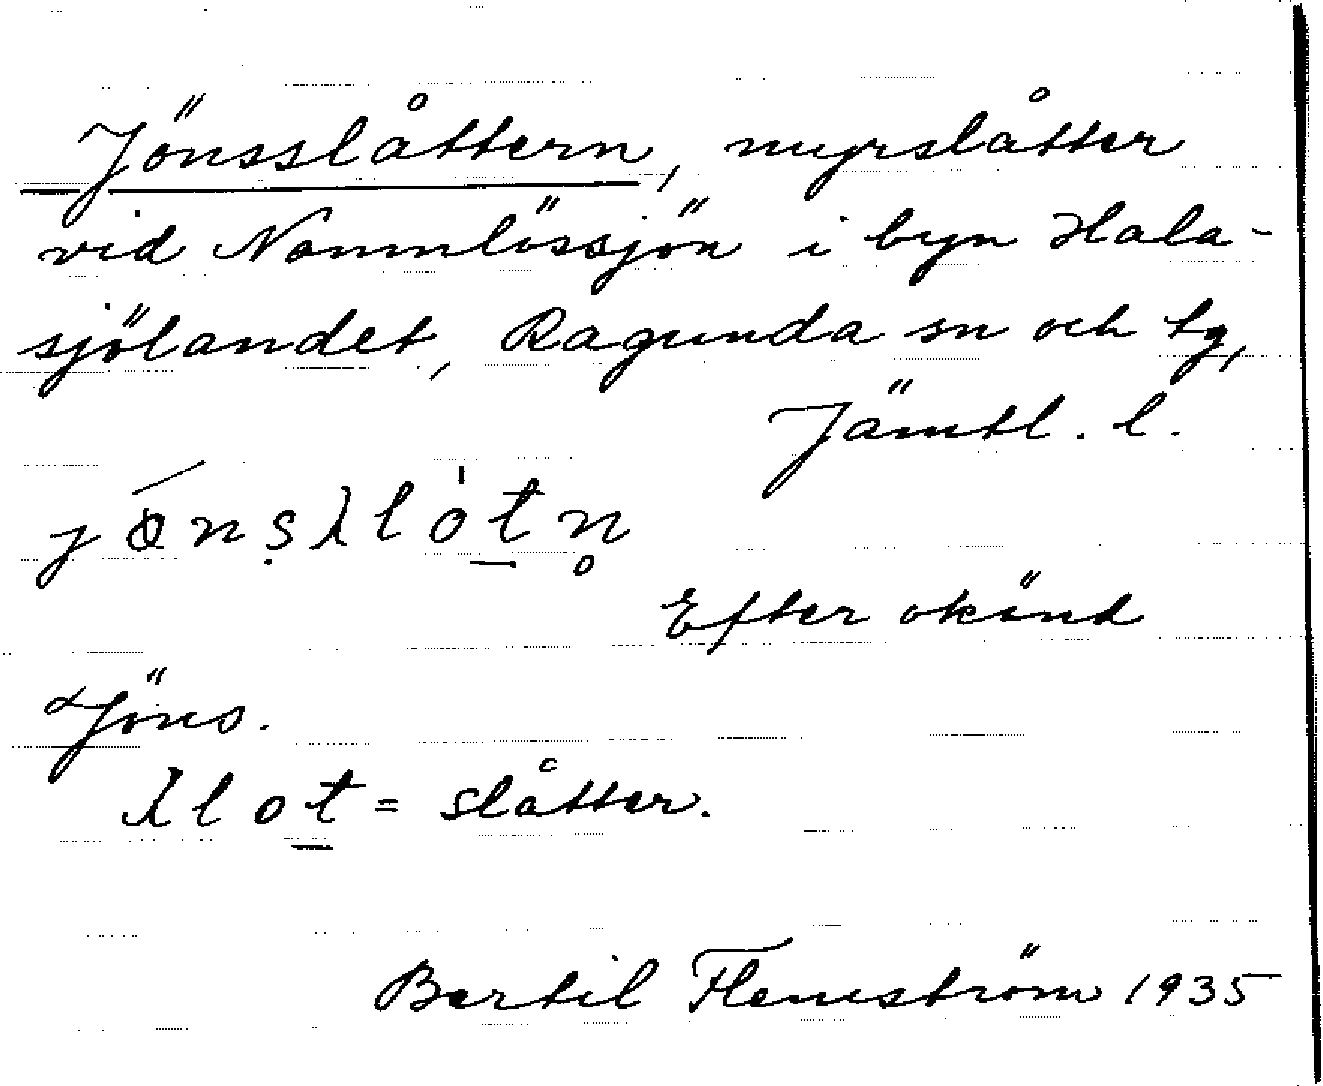 Jönsslåttern, myrslåtter
vid Nammlössjön i byn Hala-
sjölandet, Ragunda sn och tg,
Jämtl. l.
Efter okänd
Jöns.
= slåtter.
Bertil Flemström 1935